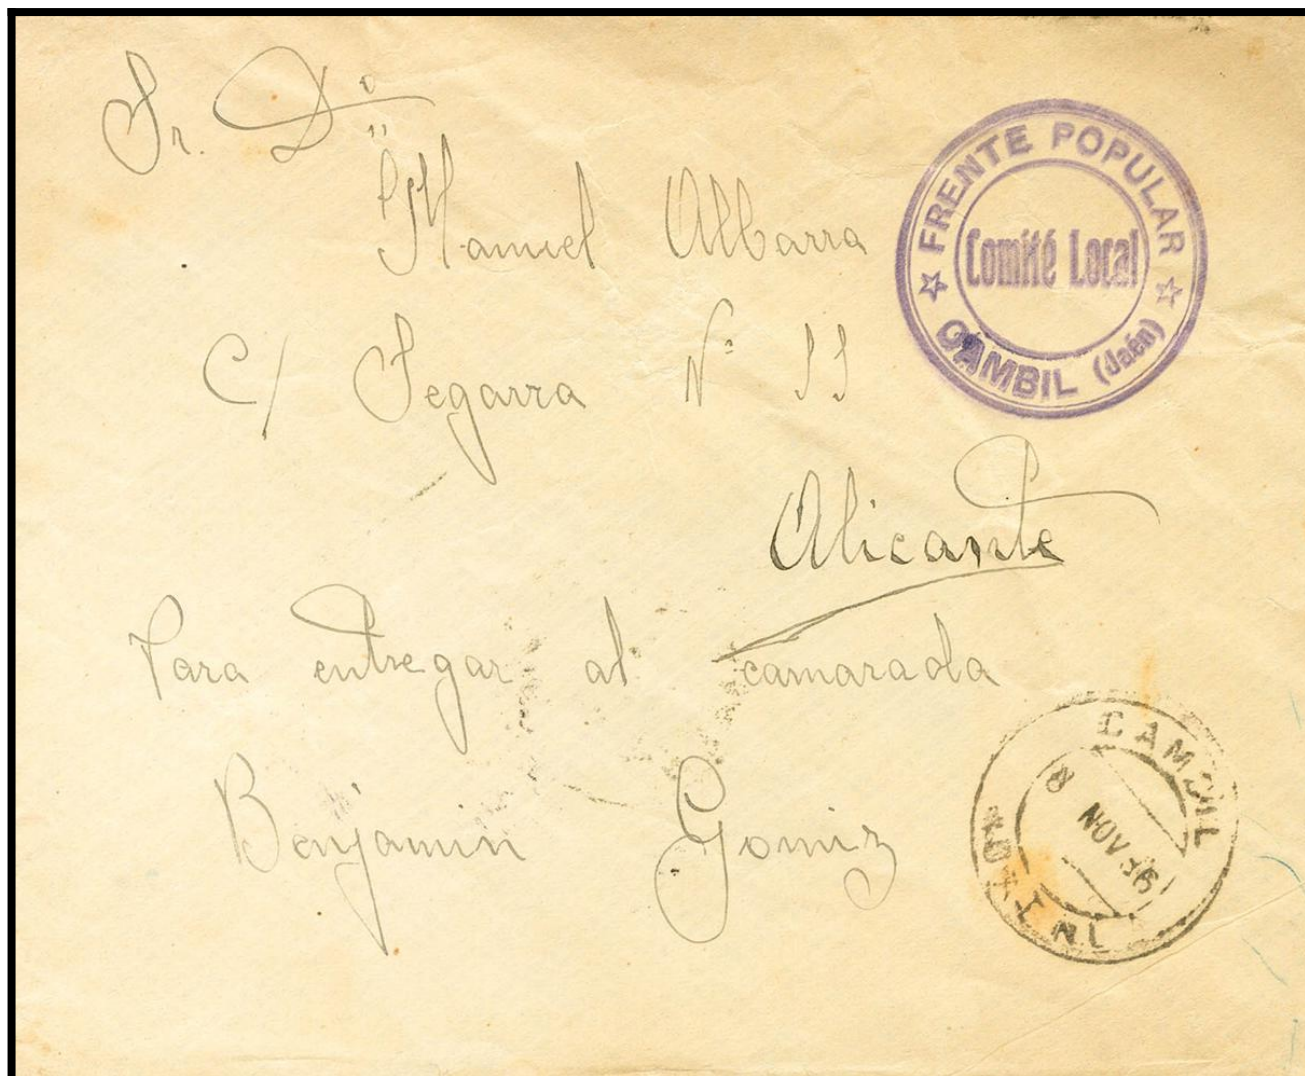 Sr. Dⁿ
Manuel Albarra
C/ Segarra Nº 11
Alicante
Para entregar al camarada
Benjamin Gomiz
FRENTE POPULAR
Comité Local
CAMBIL (Jaén)
CAMBIL
8 NOV 36